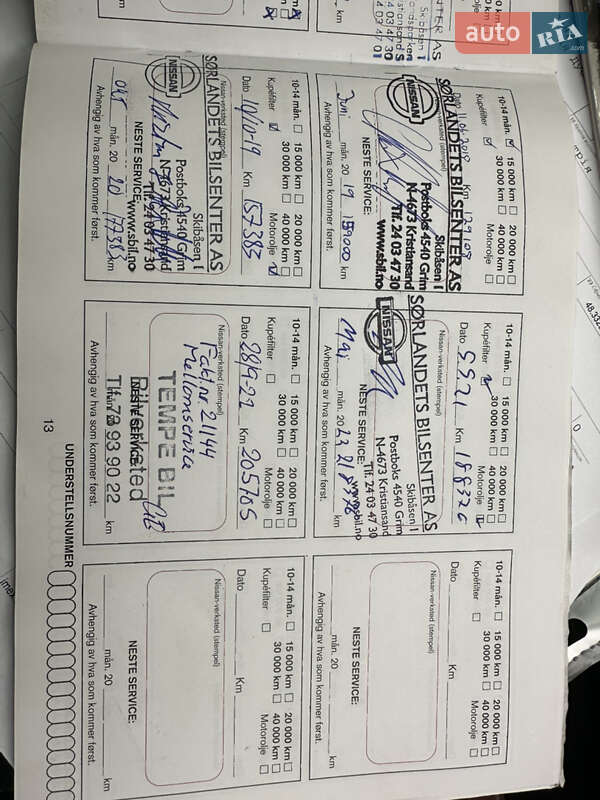 auto RIA.com
SØRLANDETS BILSENTER AS
Skibåsen 1
10-14 mån. 15 000 km 20 000 km
30 000 km 40 000 km
Kupéfilter Motorolje
Dato 11.06.2018 Km 129109
Nissan-verksted (stempel)
SØRLANDETS BILSENTER AS
NISSAN
Skibåsen 1
Postboks 4540 Grim
N-4673 Kristiansand
Tlf. 24 03 47 30
www.sbil.no
NESTE SERVICE:
Juni mån. 20 19 159000 km
Avhengig av hva som kommer først.
10-14 mån. 15 000 km 20 000 km
30 000 km 40 000 km
Kupéfilter Motorolje
Dato 5.5.21 Km 188320
Nissan-verksted (stempel)
SØRLANDETS BILSENTER AS
NISSAN
Skibåsen 1
Postboks 4540 Grim
N-4673 Kristiansand
Tlf. 24 03 47 30
www.sbil.no
NESTE SERVICE:
Mai mån. 20 23 218320 km
Avhengig av hva som kommer først.
10-14 mån. 15 000 km 20 000 km
30 000 km 40 000 km
Kupéfilter Motorolje
Dato Km
Nissan-verksted (stempel)
NESTE SERVICE:
mån. 20 km
Avhengig av hva som kommer først.
km
10-14 mån. 15 000 km 20 000 km
30 000 km 40 000 km
Kupéfilter Motorolje
Dato 10/10-19 Km 157385
Nissan-verksted (stempel)
SØRLANDETS BILSENTER AS
NISSAN
Skibåsen 1
Postboks 4540 Grim
N-4673 Kristiansand
Tlf. 24 03 47 30
www.sbil.no
NESTE SERVICE:
okt mån. 20 20 177383 km
Avhengig av hva som kommer først.
10-14 mån. 15 000 km 20 000 km
30 000 km 40 000 km
Kupéfilter Motorolje
Dato 28/9-22 Km 205765
Nissan-verksted (stempel)
Fakt.nr. 21144
Mellomservice
TEMPE BIL
Bilverksted
Tlf. 73 93 90 22
NESTE SERVICE:
mån. 20 km
Avhengig av hva som kommer først.
10-14 mån. 15 000 km 20 000 km
30 000 km 40 000 km
Kupéfilter Motorolje
Dato Km
Nissan-verksted (stempel)
NESTE SERVICE:
mån. 20 km
Avhengig av hva som kommer først.
13
UNDERSTELLSNUMMER